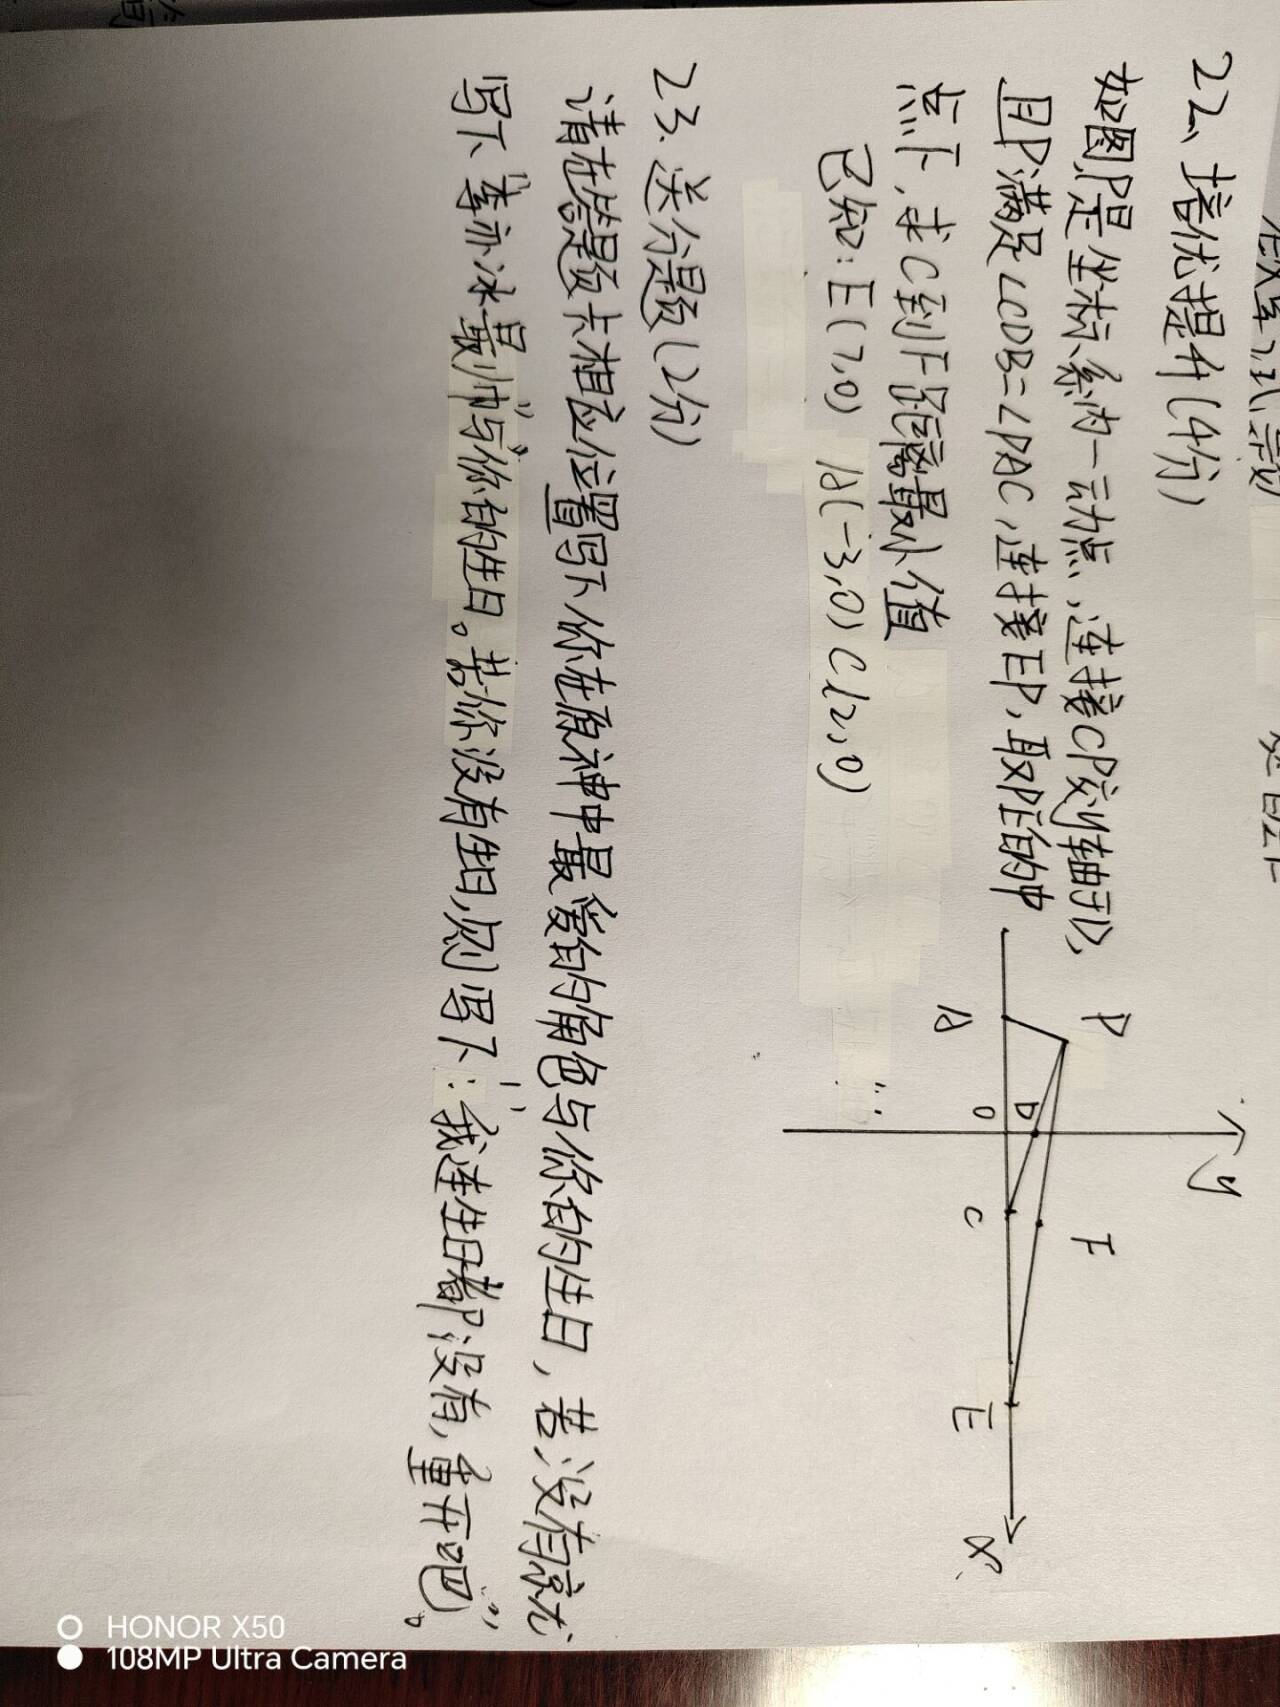 22、培优提升(4分)
如图,P是坐标系内一动点,连接CP交y轴于D,
且P满足∠CDB=∠PAC,连接EP,取PE的中
点F,求C到F距离最小值
已知:E(7,0) A(-3,0) C(2,0)
y
P
F
D
O
A
C
E
x
23.送分题(2分)
请在答题卡相应位置写下你在原神中最爱的角色与你的生日,若没有就
写下"李亦冰最帅"与你的生日。若你没有生日,则写下:"我连生日都没有,重开吧"。
HONOR X50
108MP Ultra Camera